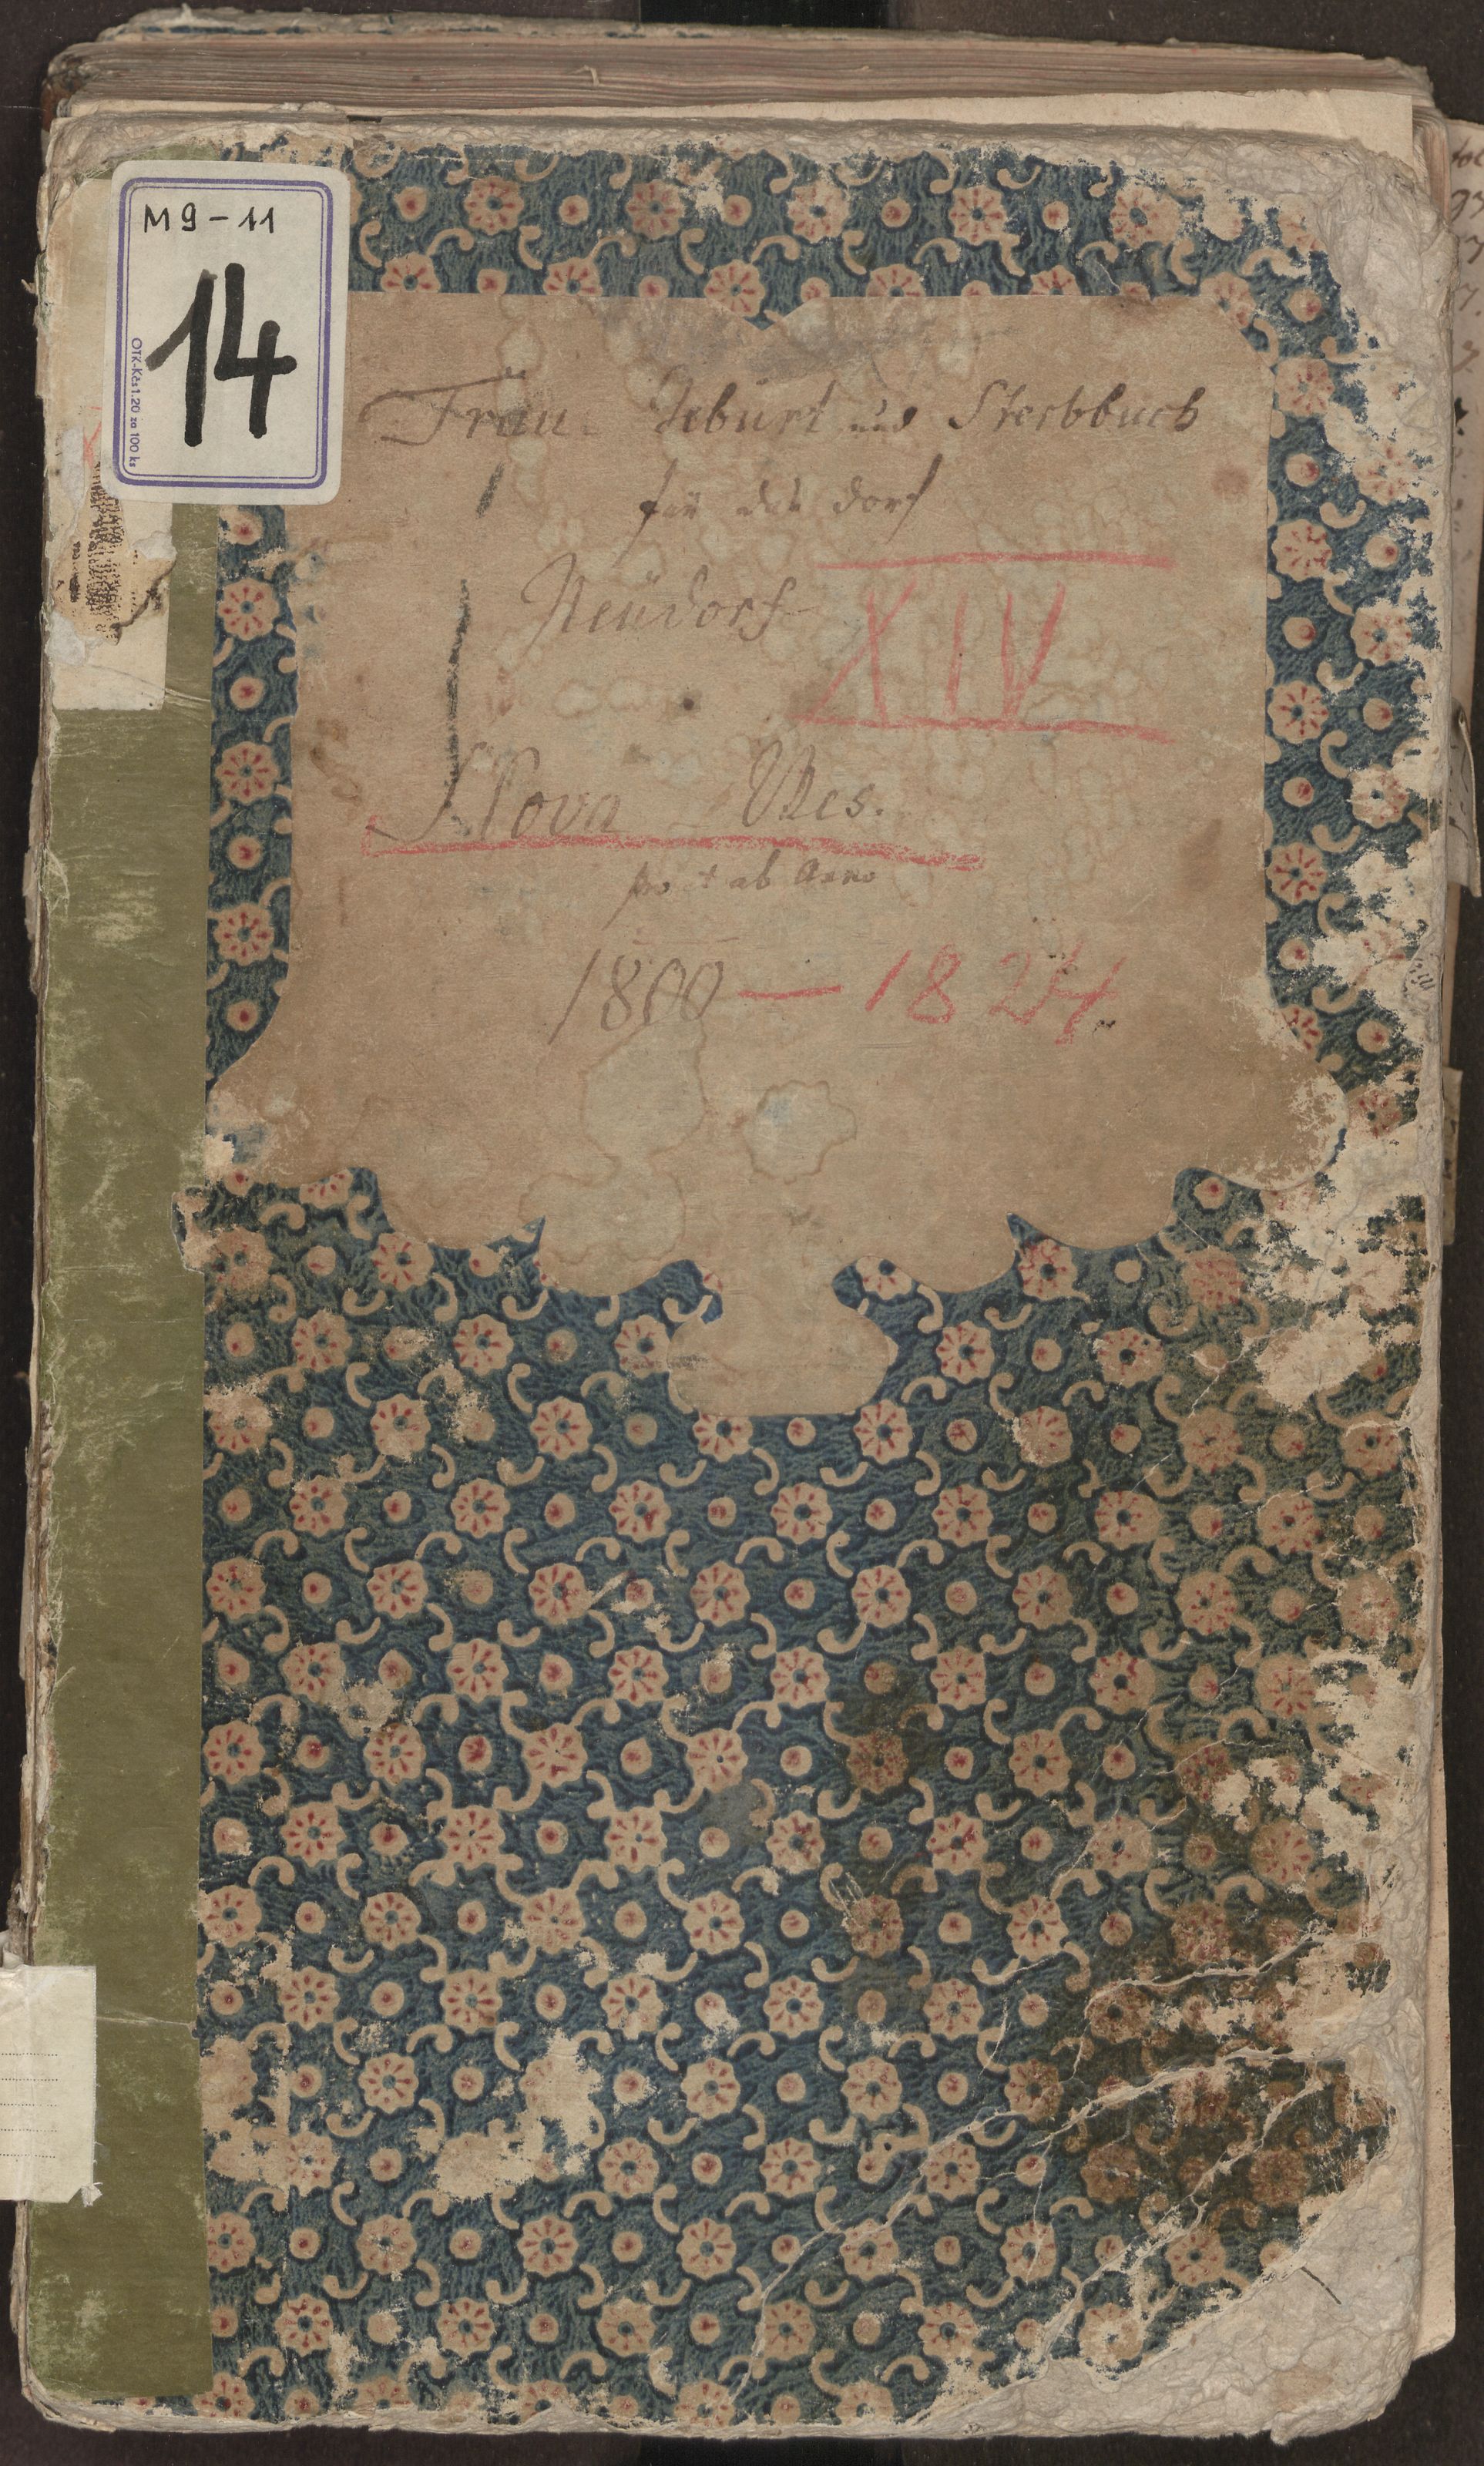 M 9 - 11
14
OTK-Kčs 1.20 za 100 ks
Trau- Geburt und Sterbbuch
für das dorf
Neudorf
XIV
Nova Wes.
ab Anno
1800 — 1824